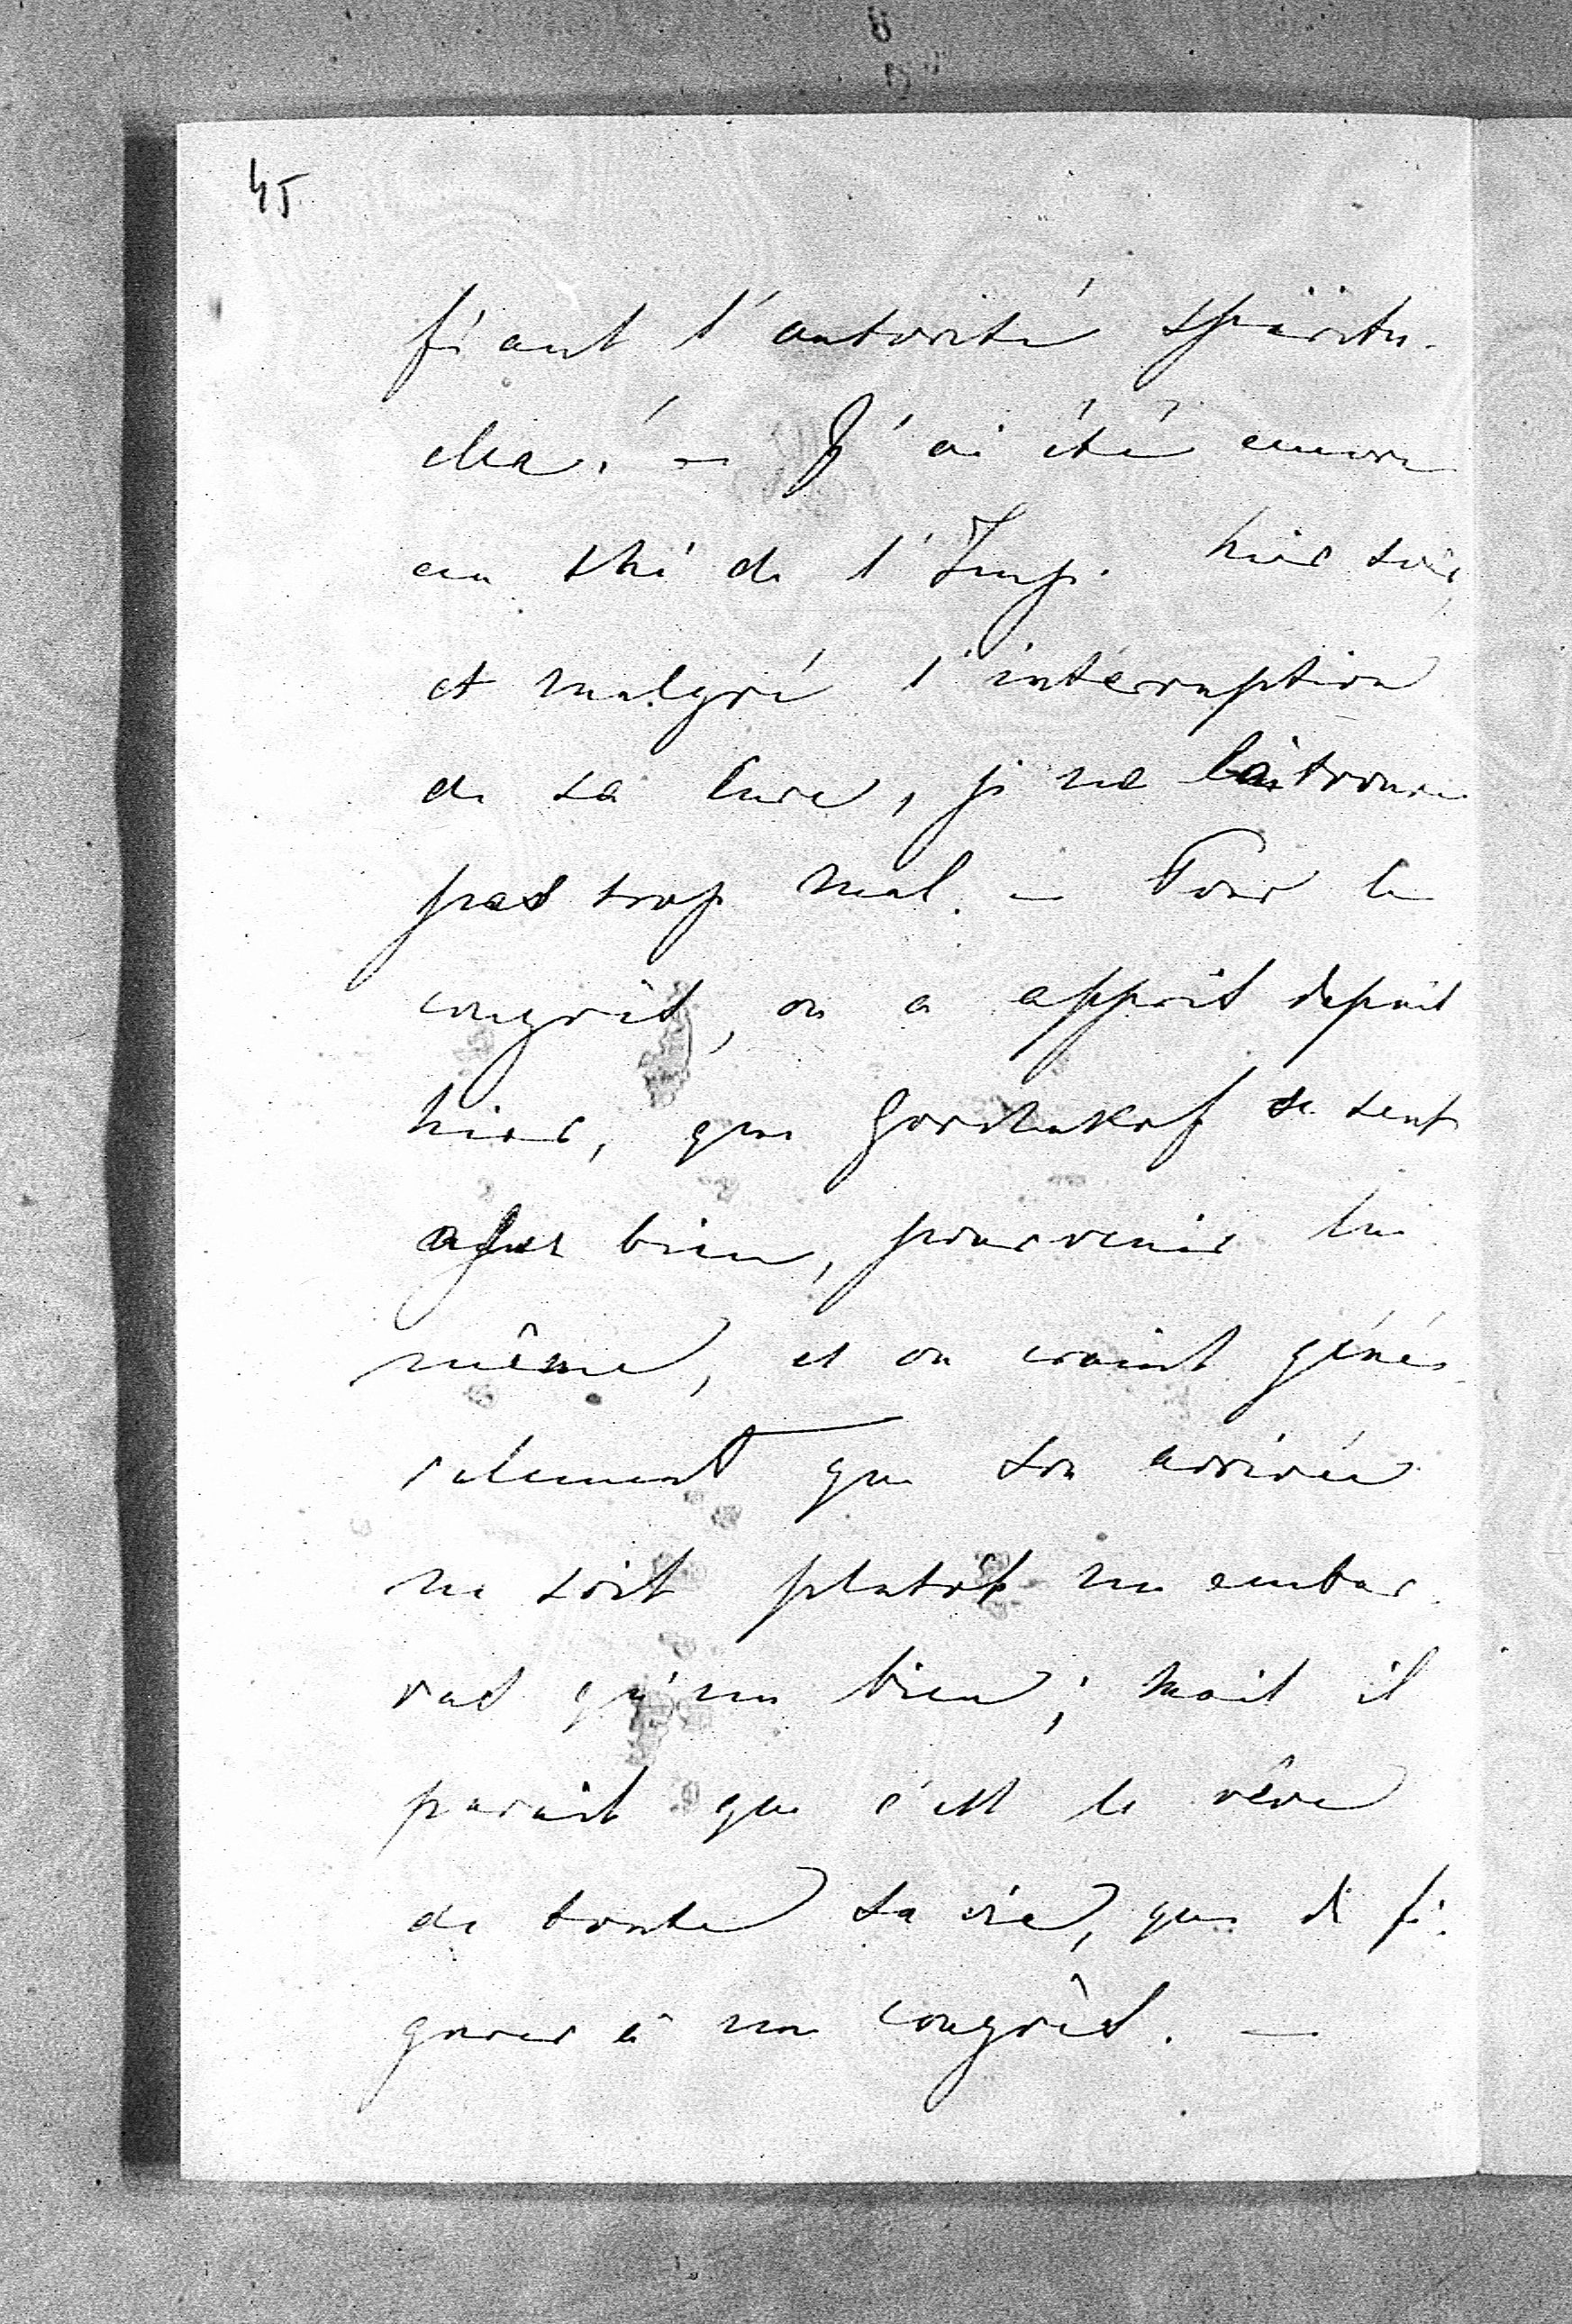 45
fiant l'autorité spiritu-
elle. — J'ai été encore
au thé de l'Imp. hier soir,
et malgré l'interruption
de sa cure, je ne la trouve
pas trop mal. — Pour le
congrès, on a appris depuis
hier, que Gortchakof se sent
assez bien, pour venir lui
même, et on craint géné-
ralement que son arrivée
ne soit plutôt un embar-
ras qu'un bien; mais il
parait que c'est le rêve
de toute sa vie, que de fi-
gurer à un congrès. —